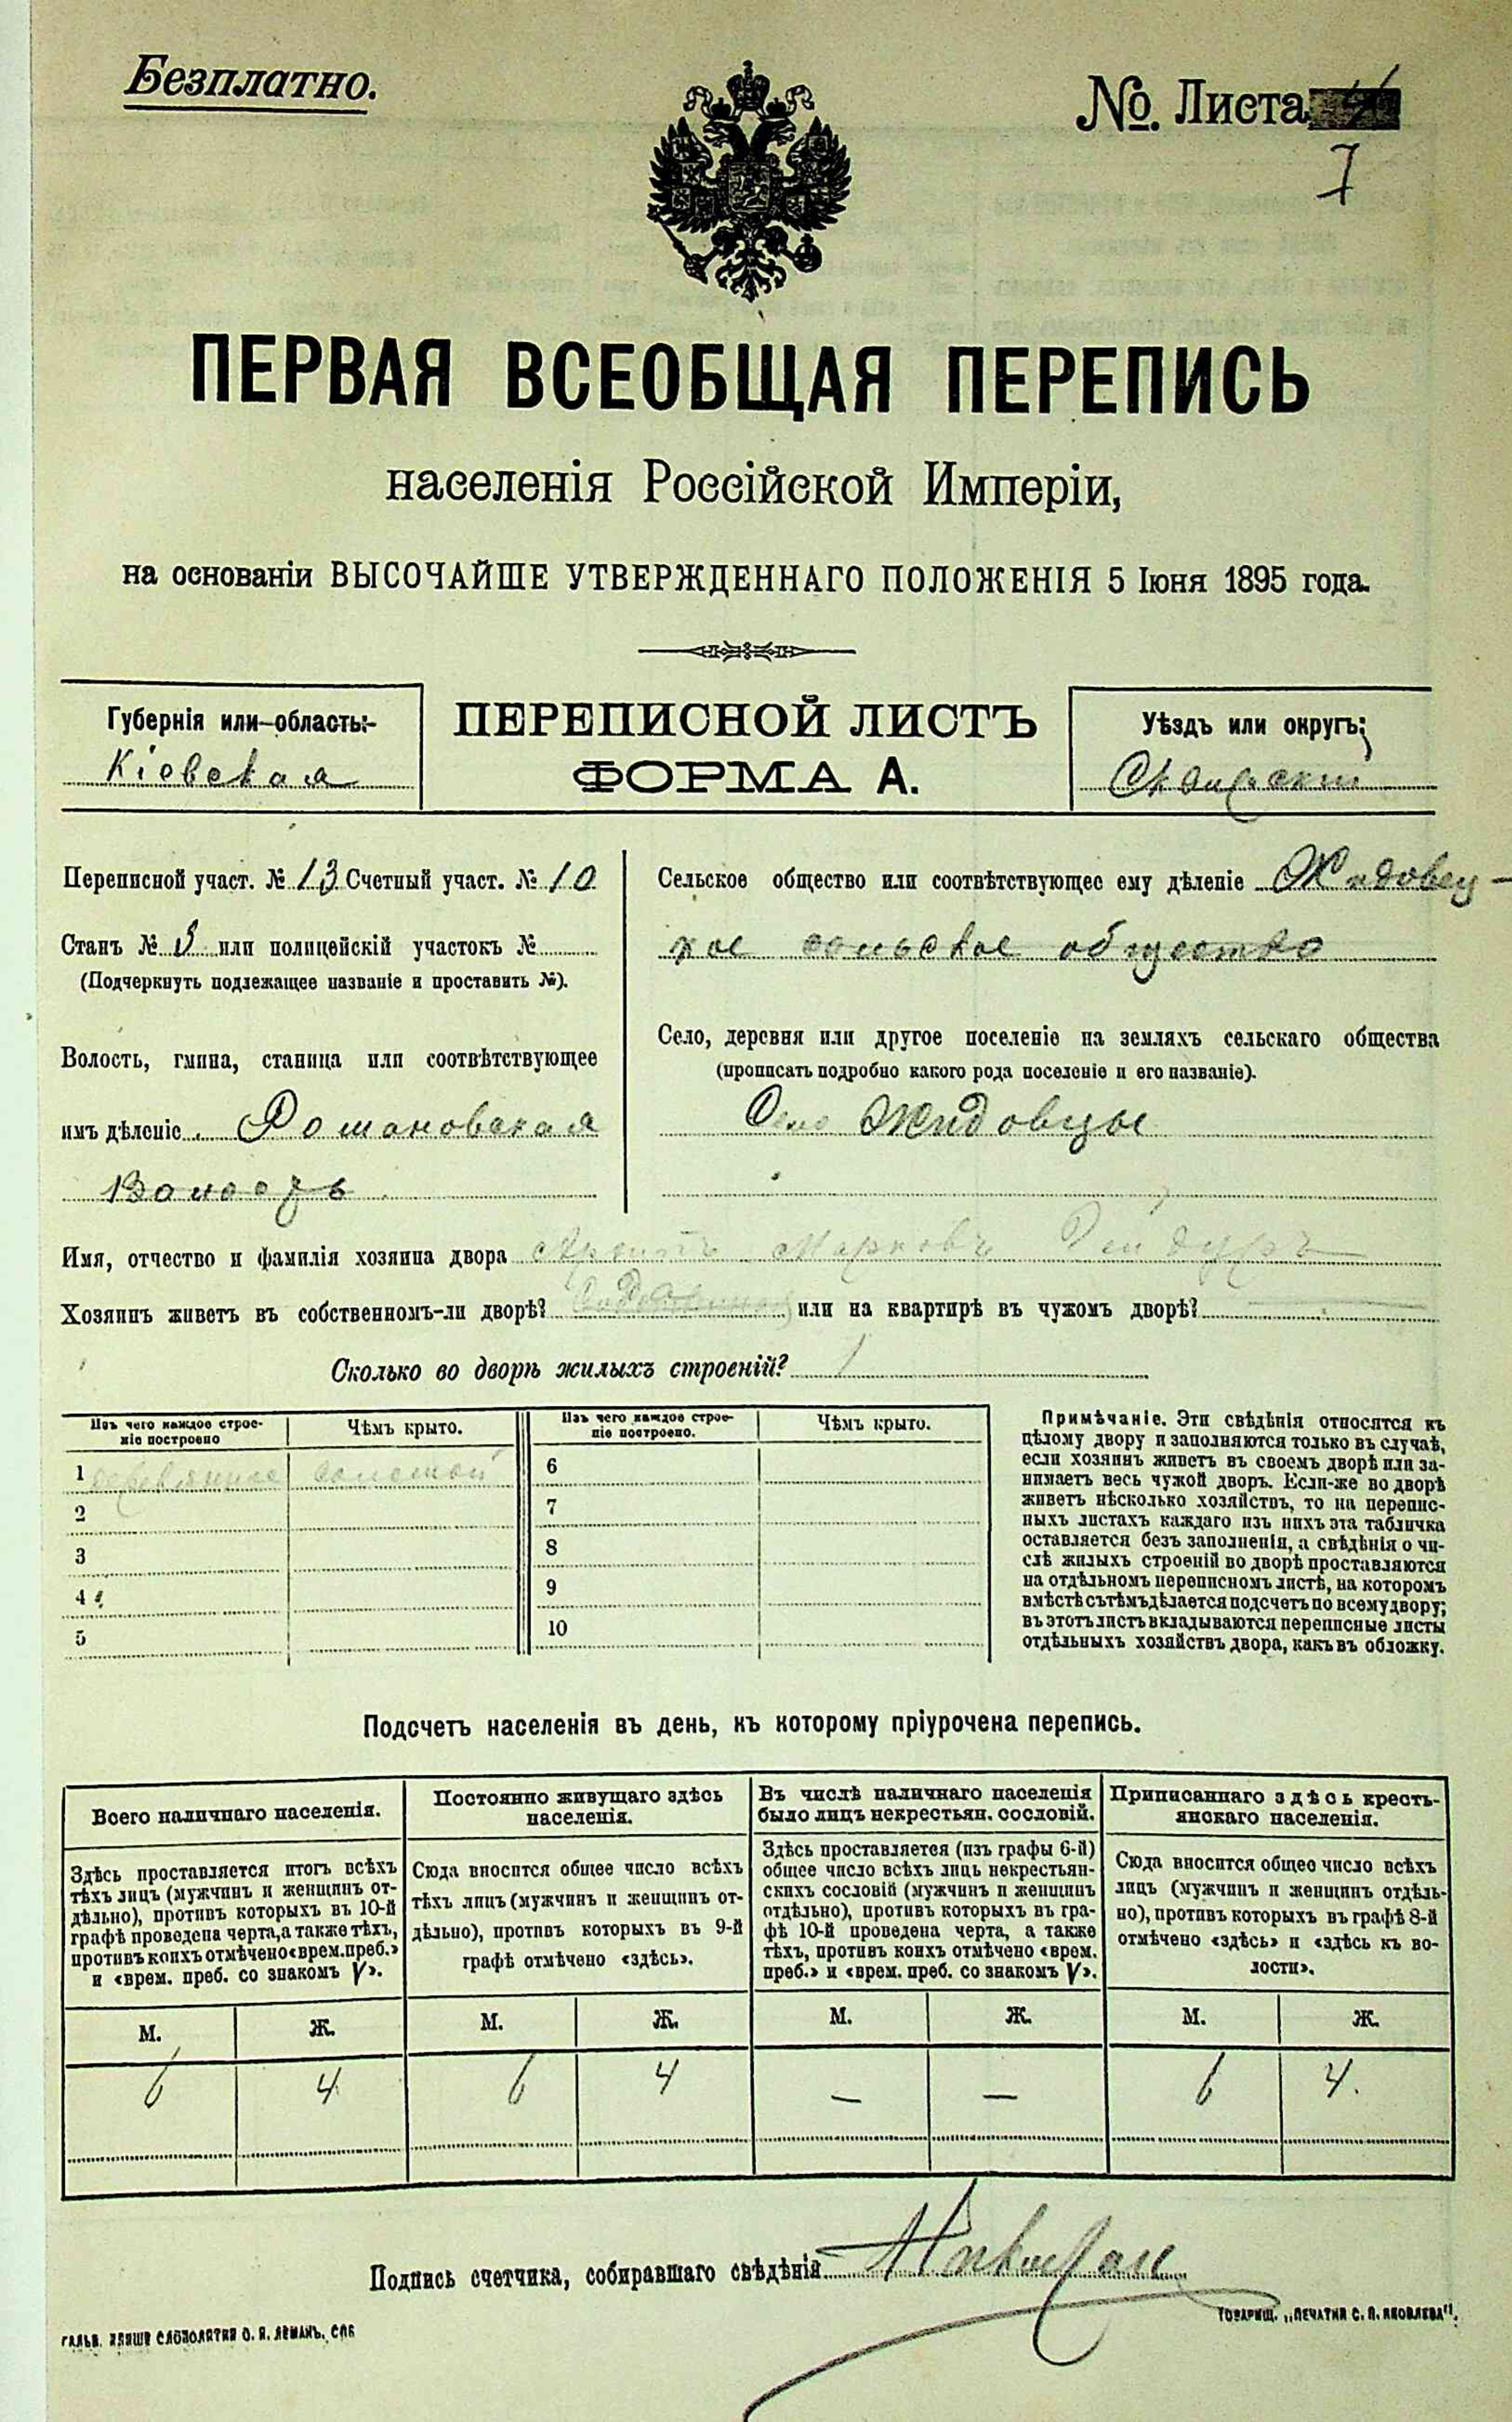 Безплатно.
№. Листа
7
ПЕРВАЯ ВСЕОБЩАЯ ПЕРЕПИСЬ
населенія Россійской Имперіи,
на основаніи ВЫСОЧАЙШЕ УТВЕРЖДЕННАГО ПОЛОЖЕНІЯ 5 Іюня 1895 года.
Губернія или область:
Кіевская
ПЕРЕПИСНОЙ ЛИСТЪ
ФОРМА А.
Уѣздъ или округъ:
Сквирскій
Переписной участ. № 13 Счетный участ. № 10
Станъ № 3 или полицейскій участокъ №
(Подчеркнуть подлежащее названіе и проставить №).
Волость, гмина, станица или соотвѣтствующее
имъ дѣленіе. Романовская
Волость
Сельское общество или соотвѣтствующее ему дѣленіе Жидовец-
кое сельское общество
Село, деревня или другое поселеніе на земляхъ сельскаго общества
(прописать подробно какого рода поселеніе и его названіе).
Село Жидовцы
Имя, отчество и фамилія хозяина двора Марковъ
Хозяинъ живетъ въ собственномъ-ли дворѣ? или на квартирѣ въ чужомъ дворѣ?
Сколько во дворѣ жилыхъ строеній? 1
Изъ чего каждое строе-
ніе построено
Чѣмъ крыто.
1 деревянное соломой
2
3
4
5
Изъ чего каждое строе-
ніе построено.
Чѣмъ крыто.
6
7
8
9
10
Примѣчаніе. Эти свѣдѣнія относятся къ
цѣлому двору и заполняются только въ случаѣ,
если хозяинъ живетъ въ своемъ дворѣ или за-
нимаетъ весь чужой дворъ. Если-же во дворѣ
живетъ нѣсколько хозяйствъ, то на перепис-
ныхъ листахъ каждаго изъ нихъ эта табличка
оставляется безъ заполненія, а свѣдѣнія о чи-
слѣ жилыхъ строеній во дворѣ проставляются
на отдѣльномъ переписномъ листѣ, на которомъ
вмѣстѣ съ тѣмъ дѣлается подсчетъ по всему двору;
въ этотъ листъ вкладываются переписные листы
отдѣльныхъ хозяйствъ двора, какъ въ обложку.
Подсчетъ населенія въ день, къ которому пріурочена перепись.
Всего наличнаго населенія.
Здѣсь проставляется итогъ всѣхъ
тѣхъ лицъ (мужчинъ и женщинъ от-
дѣльно), противъ которыхъ въ 10-й
графѣ проведена черта, а также тѣхъ,
противъ коихъ отмѣчено «врем. преб.»
и «врем. преб. со знакомъ V».
М. Ж.
6 4
Постоянно живущаго здѣсь
населенія.
Сюда вносится общее число всѣхъ
тѣхъ лицъ (мужчинъ и женщинъ от-
дѣльно), противъ которыхъ въ 9-й
графѣ отмѣчено «здѣсь».
М. Ж.
6 4
Въ числѣ наличнаго населенія
было лицъ некрестьян. сословій.
Здѣсь проставляется (изъ графы 6-й)
общее число всѣхъ лицъ некрестьян-
скихъ сословій (мужчинъ и женщинъ
отдѣльно), противъ которыхъ въ гра-
фѣ 10-й проведена черта, а также
тѣхъ, противъ коихъ отмѣчено «врем.
преб.» и «врем. преб. со знакомъ V».
М. Ж.
— —
Приписаннаго здѣсь кресть-
янскаго населенія.
Сюда вносится общее число всѣхъ
лицъ (мужчинъ и женщинъ отдѣль-
но), противъ которыхъ въ графѣ 8-й
отмѣчено «здѣсь» и «здѣсь къ во-
лости».
М. Ж.
6 4.
Подпись счетчика, собиравшаго свѣдѣнія
ТОВАРИЩ. „ПЕЧАТНЯ С. П. ЯКОВЛЕВА".
ГАЛЬВ. КЛИШЕ СЛОВОЛИТНИ О. И. ЛЕМАНЪ, СПБ